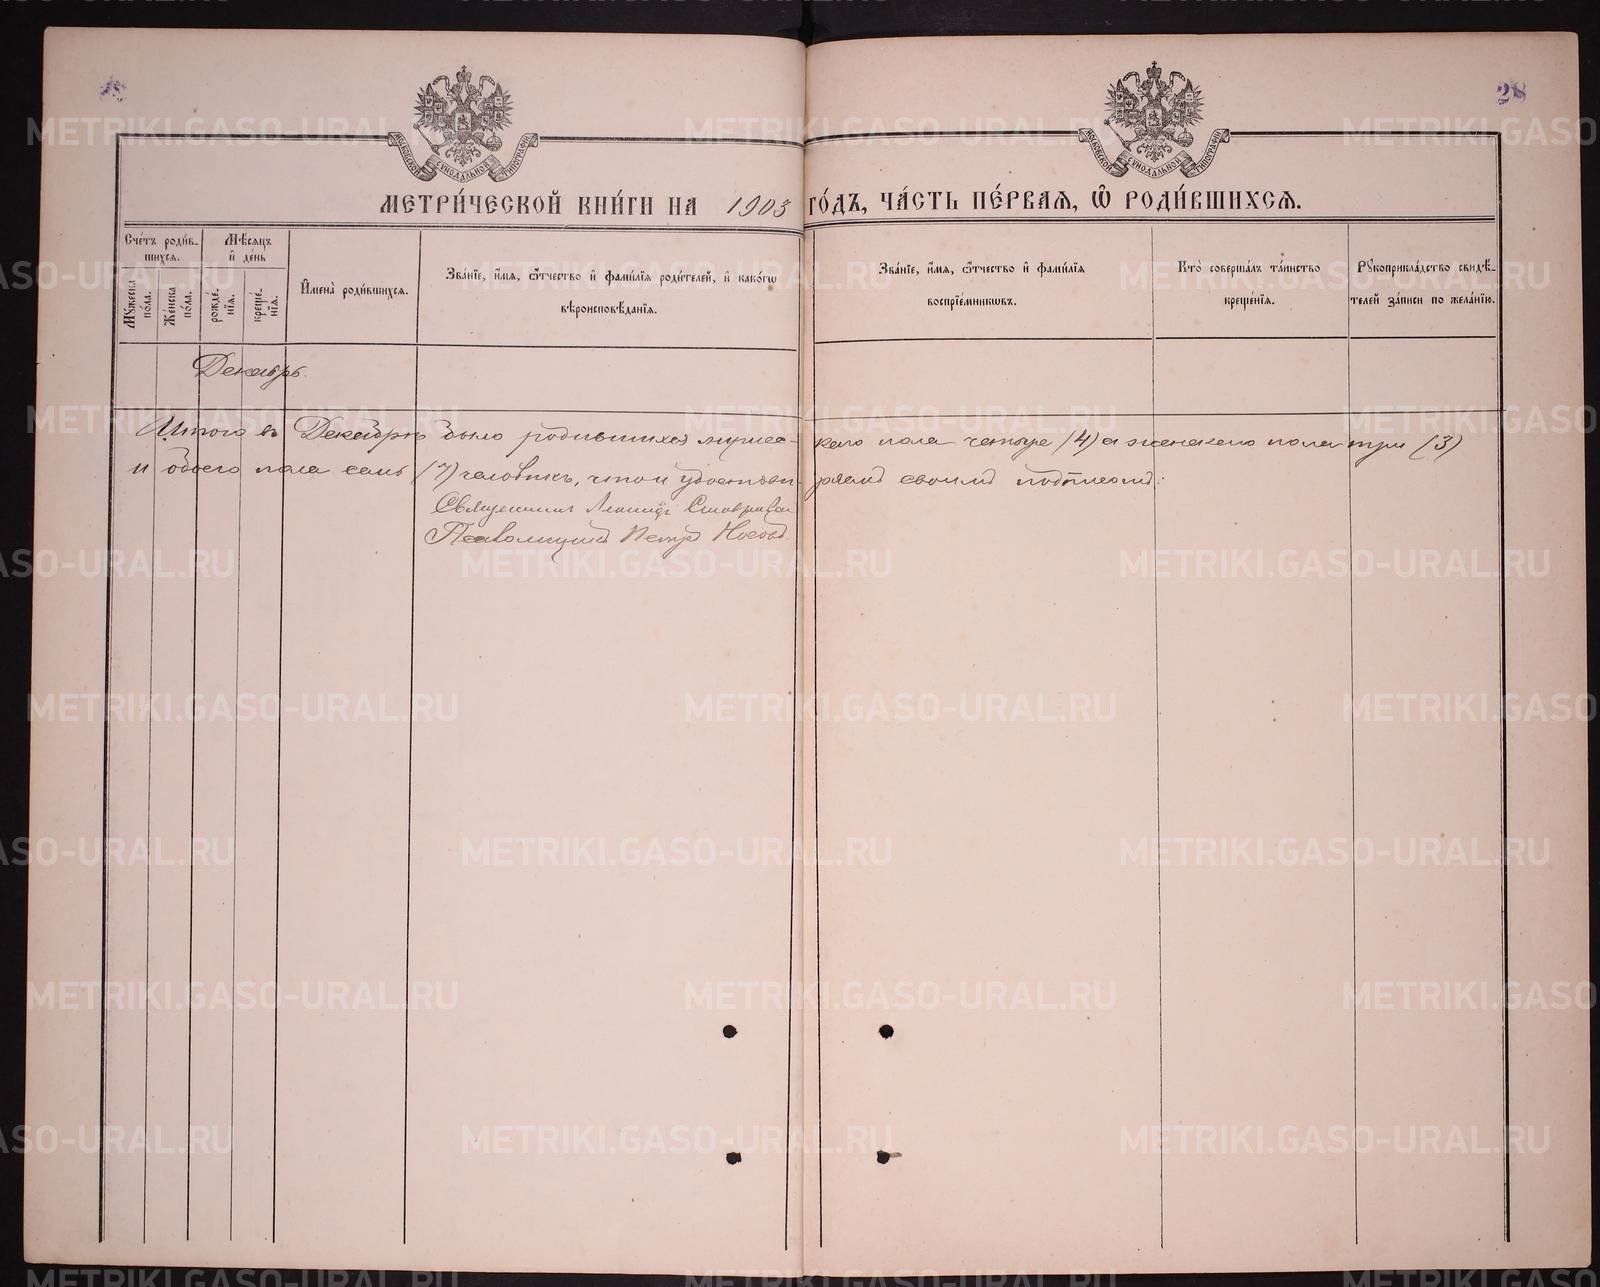 28
МОСКОВСКОЙ СУНОДАЛЬНОЙ ТИПОГРАФІИ
МОСКОВСКОЙ СУНОДАЛЬНОЙ ТИПОГРАФІИ
МЕТРИ́ЧЕСКОЙ КНИ́ГИ НА 1903 ГО́ДЪ, ЧА́СТЬ ПЕ́РВАЯ, Ѽ РОДИ́ВШИХСЯ.
Сче́тъ роди́в-
шихся.
Мѣ́сяцъ
и де́нь
Му́жеска по́ла.
Же́нска по́ла.
рожде́-нія.
креще́-нія.
Имена̀ роди́вшихся.
Зва́ніе, и́мя, ѻ́тчество и фами́лія роди́телей, и како́гѡ
вѣроисповѣ́данія.
Зва́ніе, и́мя, ѻ́тчество и фами́лія
воспріе́мникѡвъ.
Кто̀ соверша́лъ та́инство
креще́нія.
Рукоприкла́дство свидѣ́-
телей за́писи по жела́нію.
Декабрь.
Итого въ Декабрѣ было родившихся мужес-каго пола четыре (4) а женскаго пола три (3)
и обоего пола семь (7) человѣкъ, что и удостовѣ-ряемъ своимъ подписомъ:
Священникъ Леонидъ
Псаломщикъ Петръ Носовъ.
METRIKI.GASO-URAL.RU